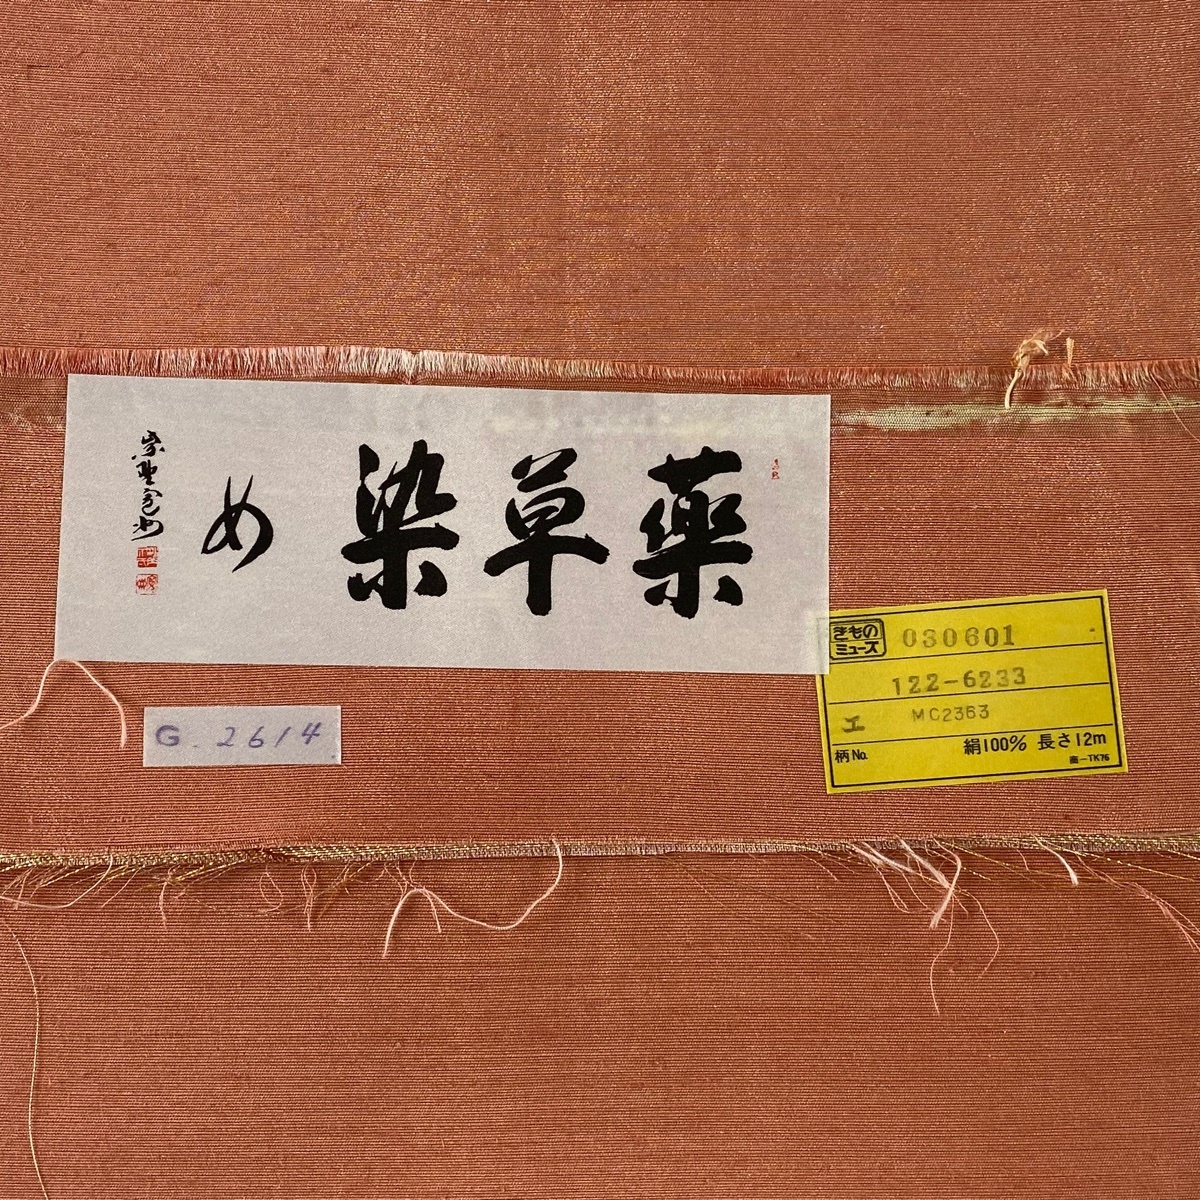 薬草染め
きもの
ミューズ
030601
122-6233
エ MC2353
柄No. 絹100% 長さ12m
TK76
G. 2614